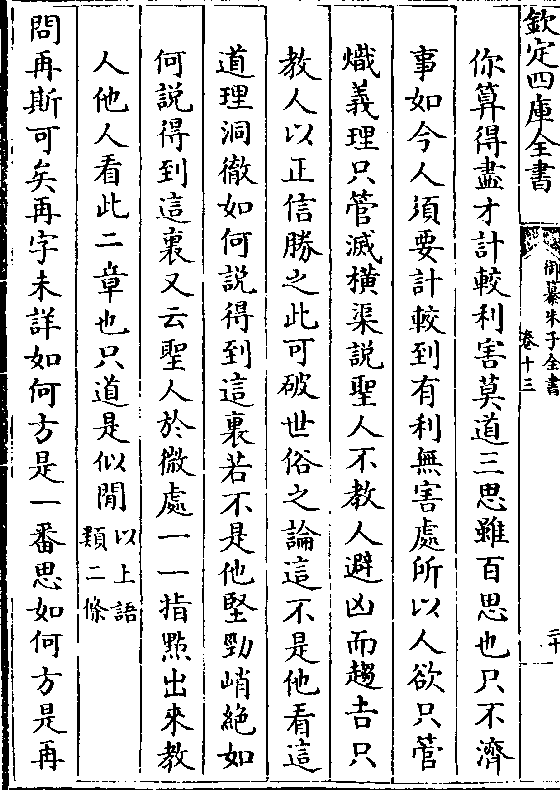 欽定四庫全書
御纂朱子全書
卷十三
二十
你算得盡才計較利害莫道三思雖百思也只不濟
事如今人須要計較到有利無害處所以人欲只管
熾義理只管滅橫渠說聖人不教人避凶而趨吉只
教人以正信勝之此可破世俗之論這不是他看這
道理洞徹如何說得到這裏若不是他堅勁峭絕如
何說得到這裏又云聖人於微處一一指點出來教
人他人看此二章也只道是似閒以上語類二條
問再斯可矣再字未詳如何方是一番思如何方是再